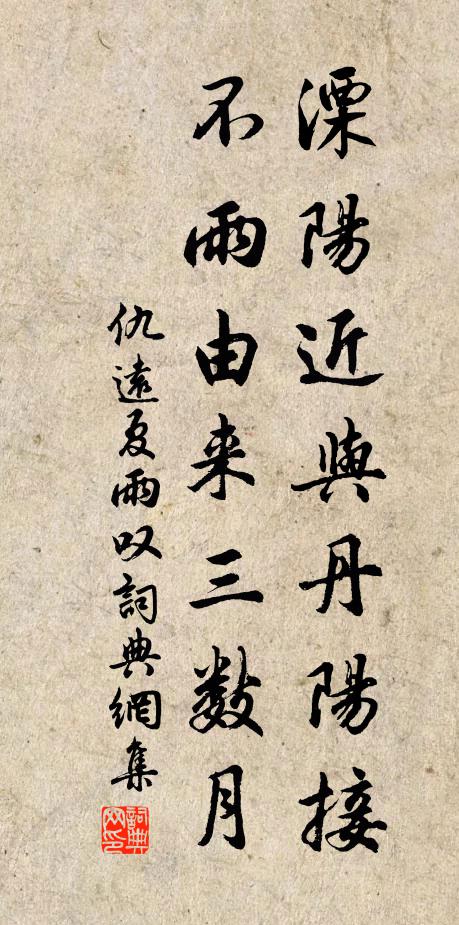 溧陽近與丹陽接
不雨由来三數月
仇遠夏雨叹詞典網集
詞典網印